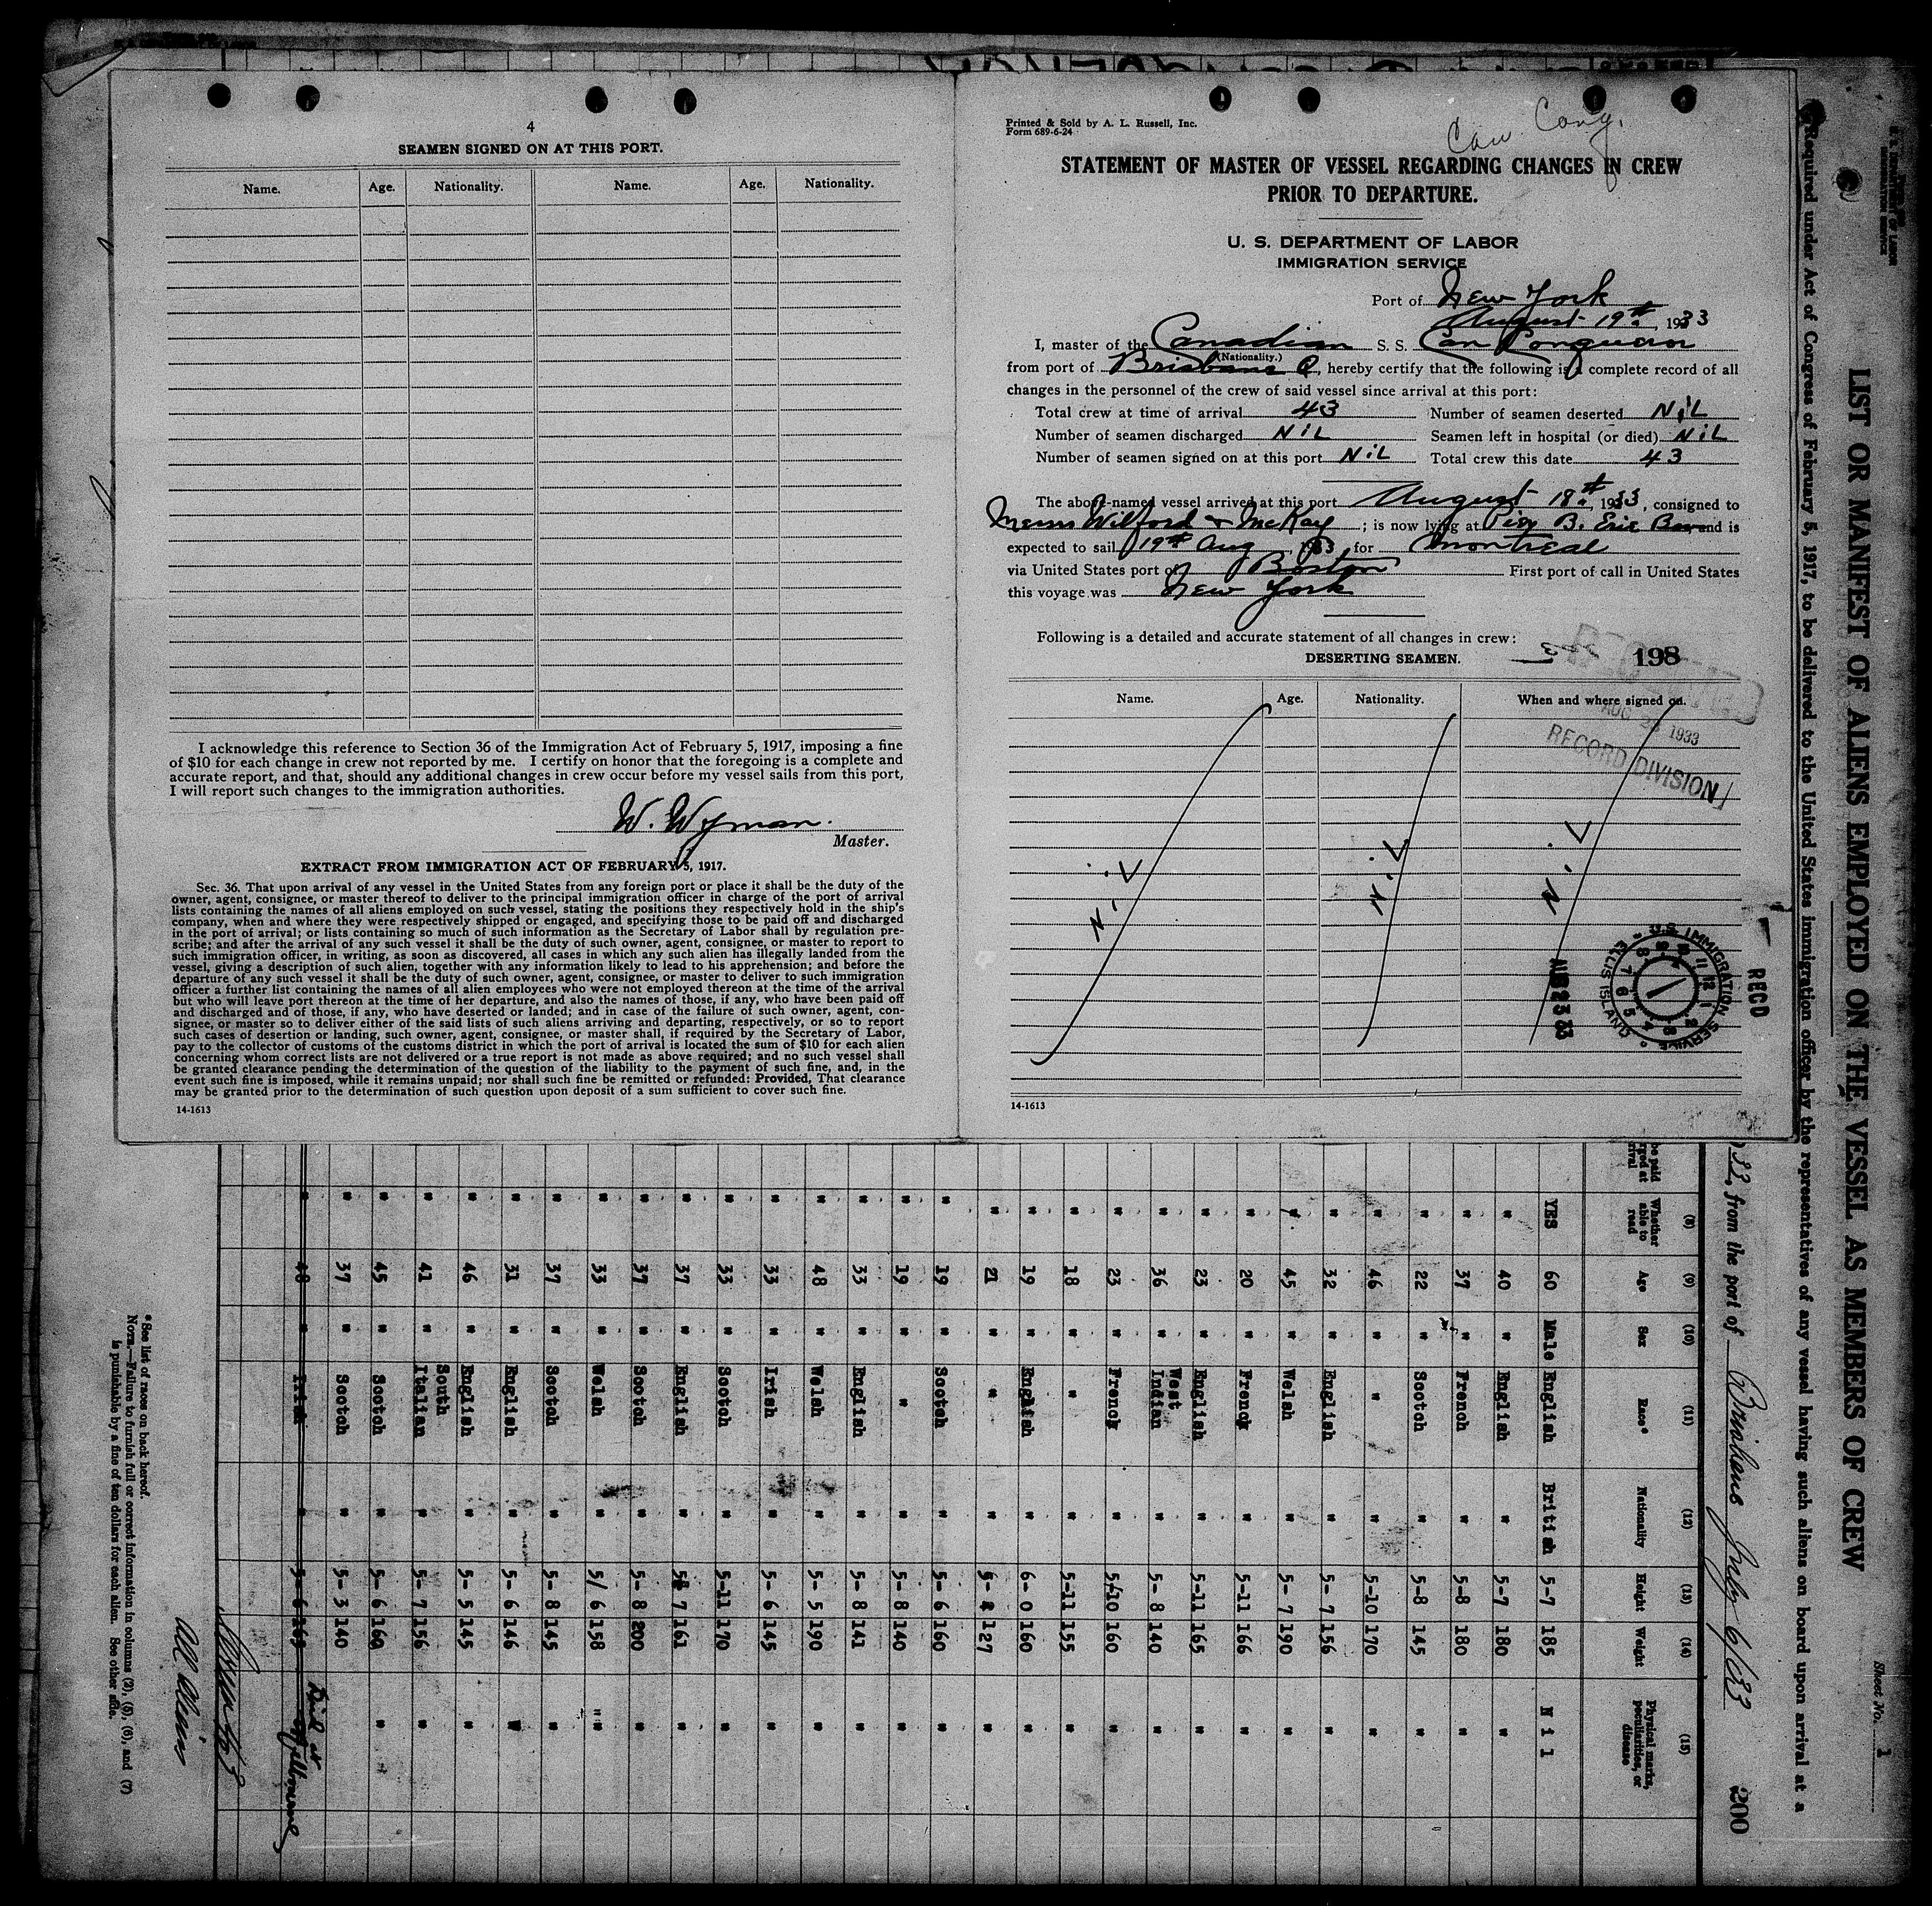 4
SEAMEN SIGNED ON AT THIS PORT.
Name. Age. Nationality. Name. Age. Nationality.
I acknowledge this reference to Section 36 of the Immigration Act of February 5, 1917, imposing a fine
of $10 for each change in crew not reported by me. I certify on honor that the foregoing is a complete and
accurate report, and that, should any additional changes in crew occur before my vessel sails from this port,
I will report such changes to the immigration authorities.
W. Wyman.
Master.
EXTRACT FROM IMMIGRATION ACT OF FEBRUARY 5, 1917.
Sec. 36. That upon arrival of any vessel in the United States from any foreign port or place it shall be the duty of the
owner, agent, consignee, or master thereof to deliver to the principal immigration officer in charge of the port of arrival
lists containing the names of all aliens employed on such vessel, stating the positions they respectively hold in the ship's
company, when and where they were respectively shipped or engaged, and specifying those to be paid off and discharged
in the port of arrival; or lists containing so much of such information as the Secretary of Labor shall by regulation pre-
scribe; and after the arrival of any such vessel it shall be the duty of such owner, agent, consignee, or master to report to
such immigration officer, in writing, as soon as discovered, all cases in which any such alien has illegally landed from the
vessel, giving a description of such alien, together with any information likely to lead to his apprehension; and before the
departure of any such vessel it shall be the duty of such owner, agent, consignee, or master to deliver to such immigration
officer a further list containing the names of all alien employees who were not employed thereon at the time of the arrival
but who will leave port thereon at the time of her departure, and also the names of those, if any, who have been paid off
and discharged and of those, if any, who have deserted or landed; and in case of the failure of such owner, agent, con-
signee, or master so to deliver either of the said lists of such aliens arriving and departing, respectively, or so to report
such cases of desertion or landing, such owner, agent, consignee, or master shall, if required by the Secretary of Labor,
pay to the collector of customs of the customs district in which the port of arrival is located the sum of $10 for each alien
concerning whom correct lists are not delivered or a true report is not made as above required; and no such vessel shall
be granted clearance pending the determination of the question of the liability to the payment of such fine, and, in the
event such fine is imposed, while it remains unpaid; nor shall such fine be remitted or refunded: Provided, That clearance
may be granted prior to the determination of such question upon deposit of a sum sufficient to cover such fine.
14-1613
Printed & Sold by A. L. Russell, Inc.
Form 689-6-24
Can Conq.
STATEMENT OF MASTER OF VESSEL REGARDING CHANGES IN CREW
PRIOR TO DEPARTURE.
U. S. DEPARTMENT OF LABOR
IMMIGRATION SERVICE
Port of New York
August 19th, 1933
I, master of the Canadian S. S. Can Conqueror
(Nationality.)
from port of Brisbane Q, hereby certify that the following is a complete record of all
changes in the personnel of the crew of said vessel since arrival at this port:
Total crew at time of arrival 43 Number of seamen deserted NiL
Number of seamen discharged NiL Seamen left in hospital (or died) NiL
Number of seamen signed on at this port NiL Total crew this date 43
The above-named vessel arrived at this port August 18th, 1933, consigned to
Messrs Wilford & McKay; is now lying at Pier B. Erie Basin, and is
expected to sail 19th Aug, 1933 for Montreal
via United States port of Boston First port of call in United States
this voyage was New York
Following is a detailed and accurate statement of all changes in crew:
DESERTING SEAMEN. 198
Name. Age. Nationality. When and where signed on.
AUG 1933
RECORD DIVISION
NiL NiL NiL
AUG 23 33
U.S. IMMIGRATION SERVICE
ELLIS ISLAND
RECD
14-1613
LIST OR MANIFEST OF ALIENS EMPLOYED ON THE VESSEL AS MEMBERS OF CREW
Sheet No. 1
Required under Act of Congress of February 5, 1917, to be delivered to the United States immigration officer by the representatives of any vessel having such aliens on board upon arrival at a
33, from the port of Brisbane July 6/33 200
(8) Whether able to read (9) Age (10) Sex (11) Race* (12) Nationality (13) Height (14) Weight (15) Physical marks, peculiarities, or disease
YES 60 Male English British 5-7 185 Nil
" 40 " English " 5-7 180 "
" 37 " French " 5-8 180 "
" 22 " Scotch " 5-8 145 "
" 46 " " " 5-10 170 "
" 32 " English " 5-7 156 "
" 45 " Welsh " 5-7 190 "
" 20 " French " 5-11 166 "
" 23 " English " 5-11 165 "
" 36 " West Indian " 5-8 140 "
" 23 " French " 5/10 160 "
" 18 " " " 5-11 155 "
" 19 " English " 6-0 160 "
" 21 " " " 127 "
" 19 " Scotch " 5-6 160 "
" 19 " " " 5-8 140 "
" 33 " English " 5-8 141 "
" 48 " Welsh " 5-5 190 "
" 33 " Irish " 5-6 145 "
" 33 " Scotch " 5-11 170 "
" 37 " English " 7 161 "
" 37 " Scotch " 5-8 200 "
" 33 " Welsh " 5/6 158 "
" 37 " Scotch " 5-8 145 "
" 31 " English " 5-6 146 "
" 46 " English " 5-5 145 "
" 41 " South Italian " 5-7 156 "
" 45 " Scotch " 5-6 160 "
" 37 " Scotch " 5-3 140
" 48 " Irish " 5-6
Died at
all aliens
*See list of races on back hereof.
NOTE.—Failure to furnish full or correct information in columns (3), (5), (6), and (7)
is punishable by a fine of ten dollars for each alien. See other side.